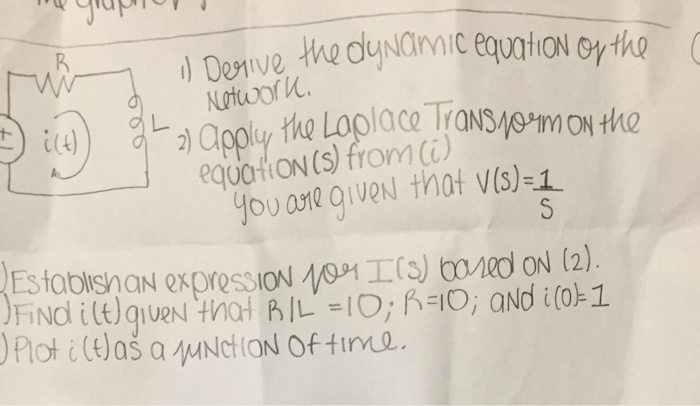 the graph of
R
1) Derive the dynamic equation of the
Network.
± i(t) L
2) apply the Laplace Transform on the
equation(s) from (i)
You are given that V(s)=1/S
)Establish an expression for I(s) based on (2).
)Find i(t) given that R/L =10; R=10; and i(0)=1
)Plot i(t) as a function of time.